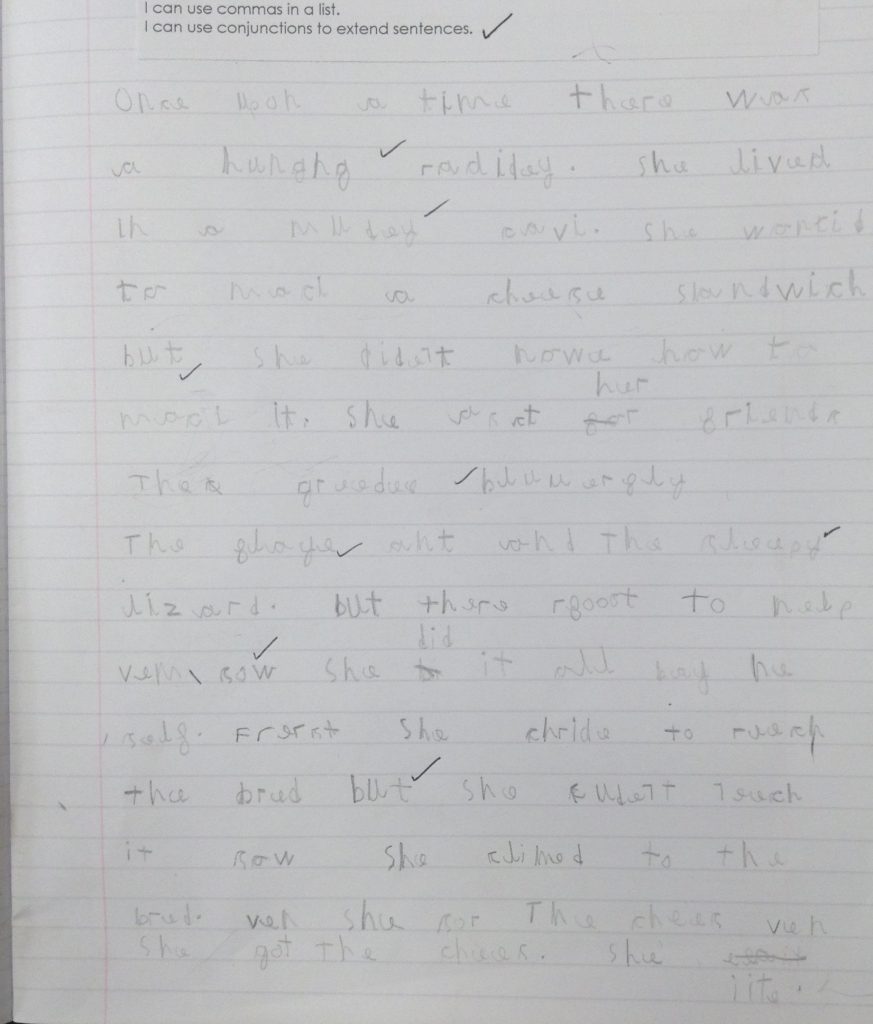 I can use commas in a list.
I can use conjunctions to extend sentences.
Once upon a time there was
a hunghg radidey. she lived
in a mudey cavi. she wantid
to maci a cheese sandwich
but she didatt nowe how to
her
maci it. she asct friends
The greedee
The ant and The sleepy
lizard. but there to help
did
vem sow she it all bay he
self. Frerst she chride to reech
the bred but she cudett reech
it sow she climed to the
bred. ven she sor The chees ven
she got the chees. she